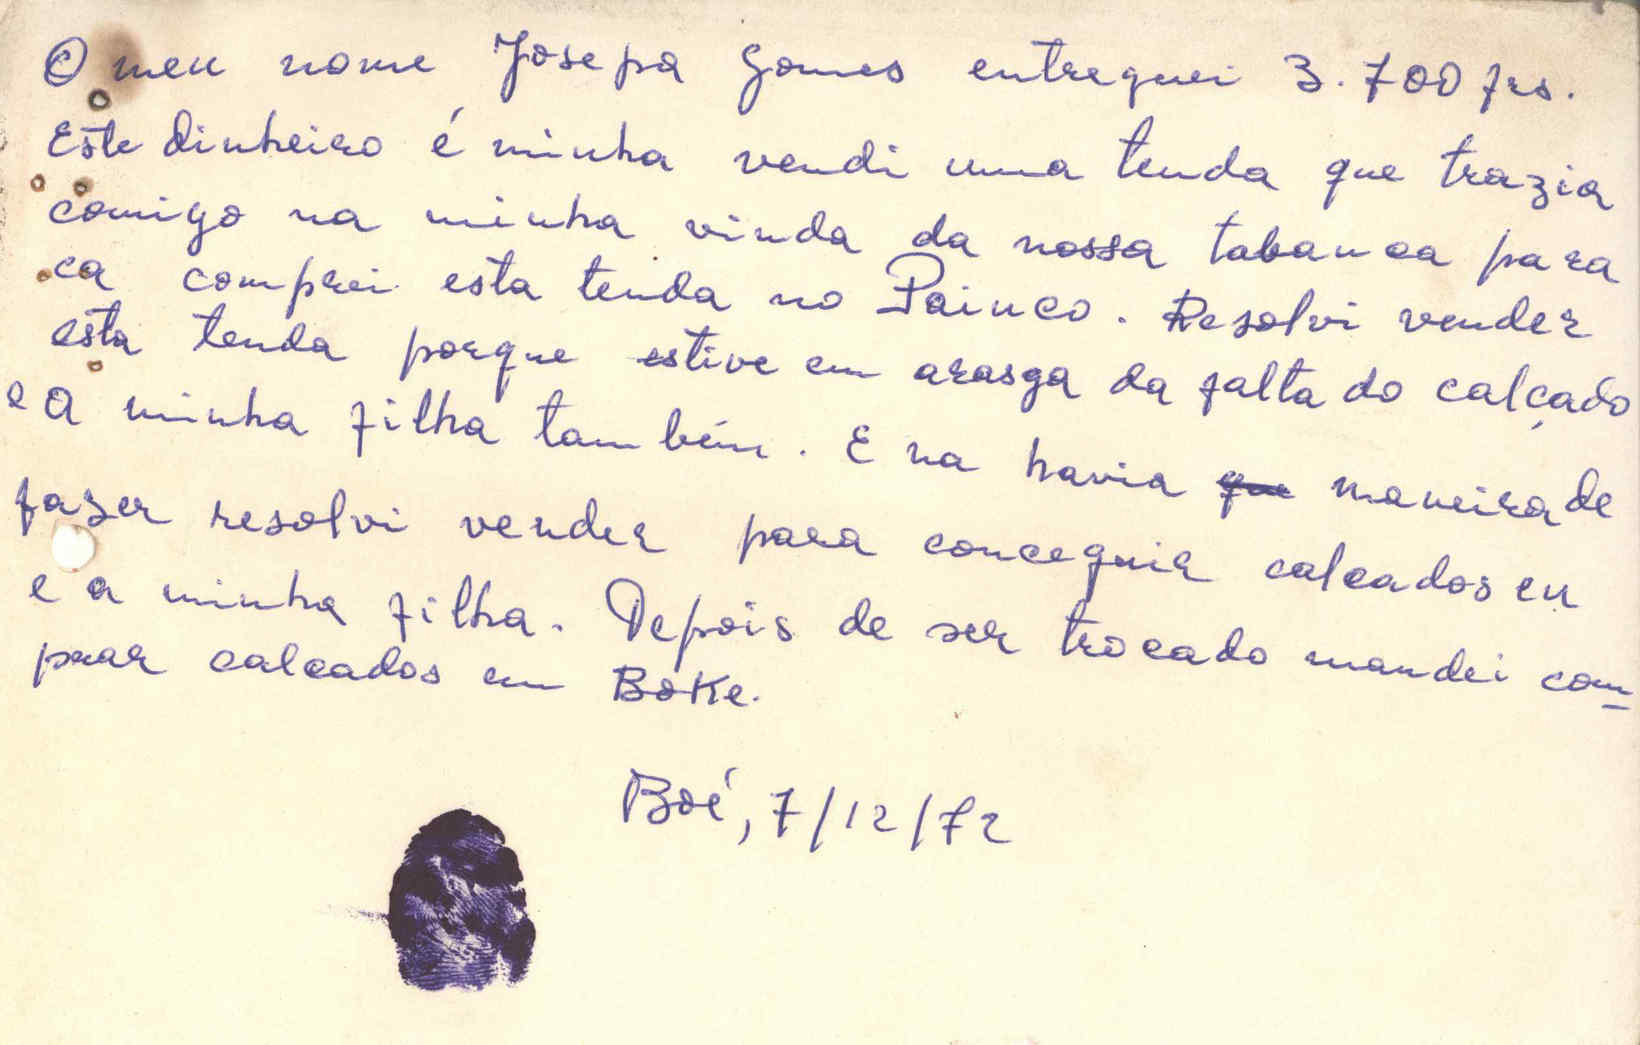 O meu nome Josepa Gomes entreguei 3.700 frs.
Este dinheiro é minha vendi uma tenda que trazia
comigo na minha vinda da nossa tabanca para
ca comprei esta tenda no Painco. Resolvi vender
esta tenda porque estive em arasga da falta do calçado
e a minha filha também. E na havia que maneira de
fazer resolvi vender para conceguir calcados eu
e a minha filha. Depois de ser trocado mandei com_
prar calcados em Boke.
Boé, 7/12/72